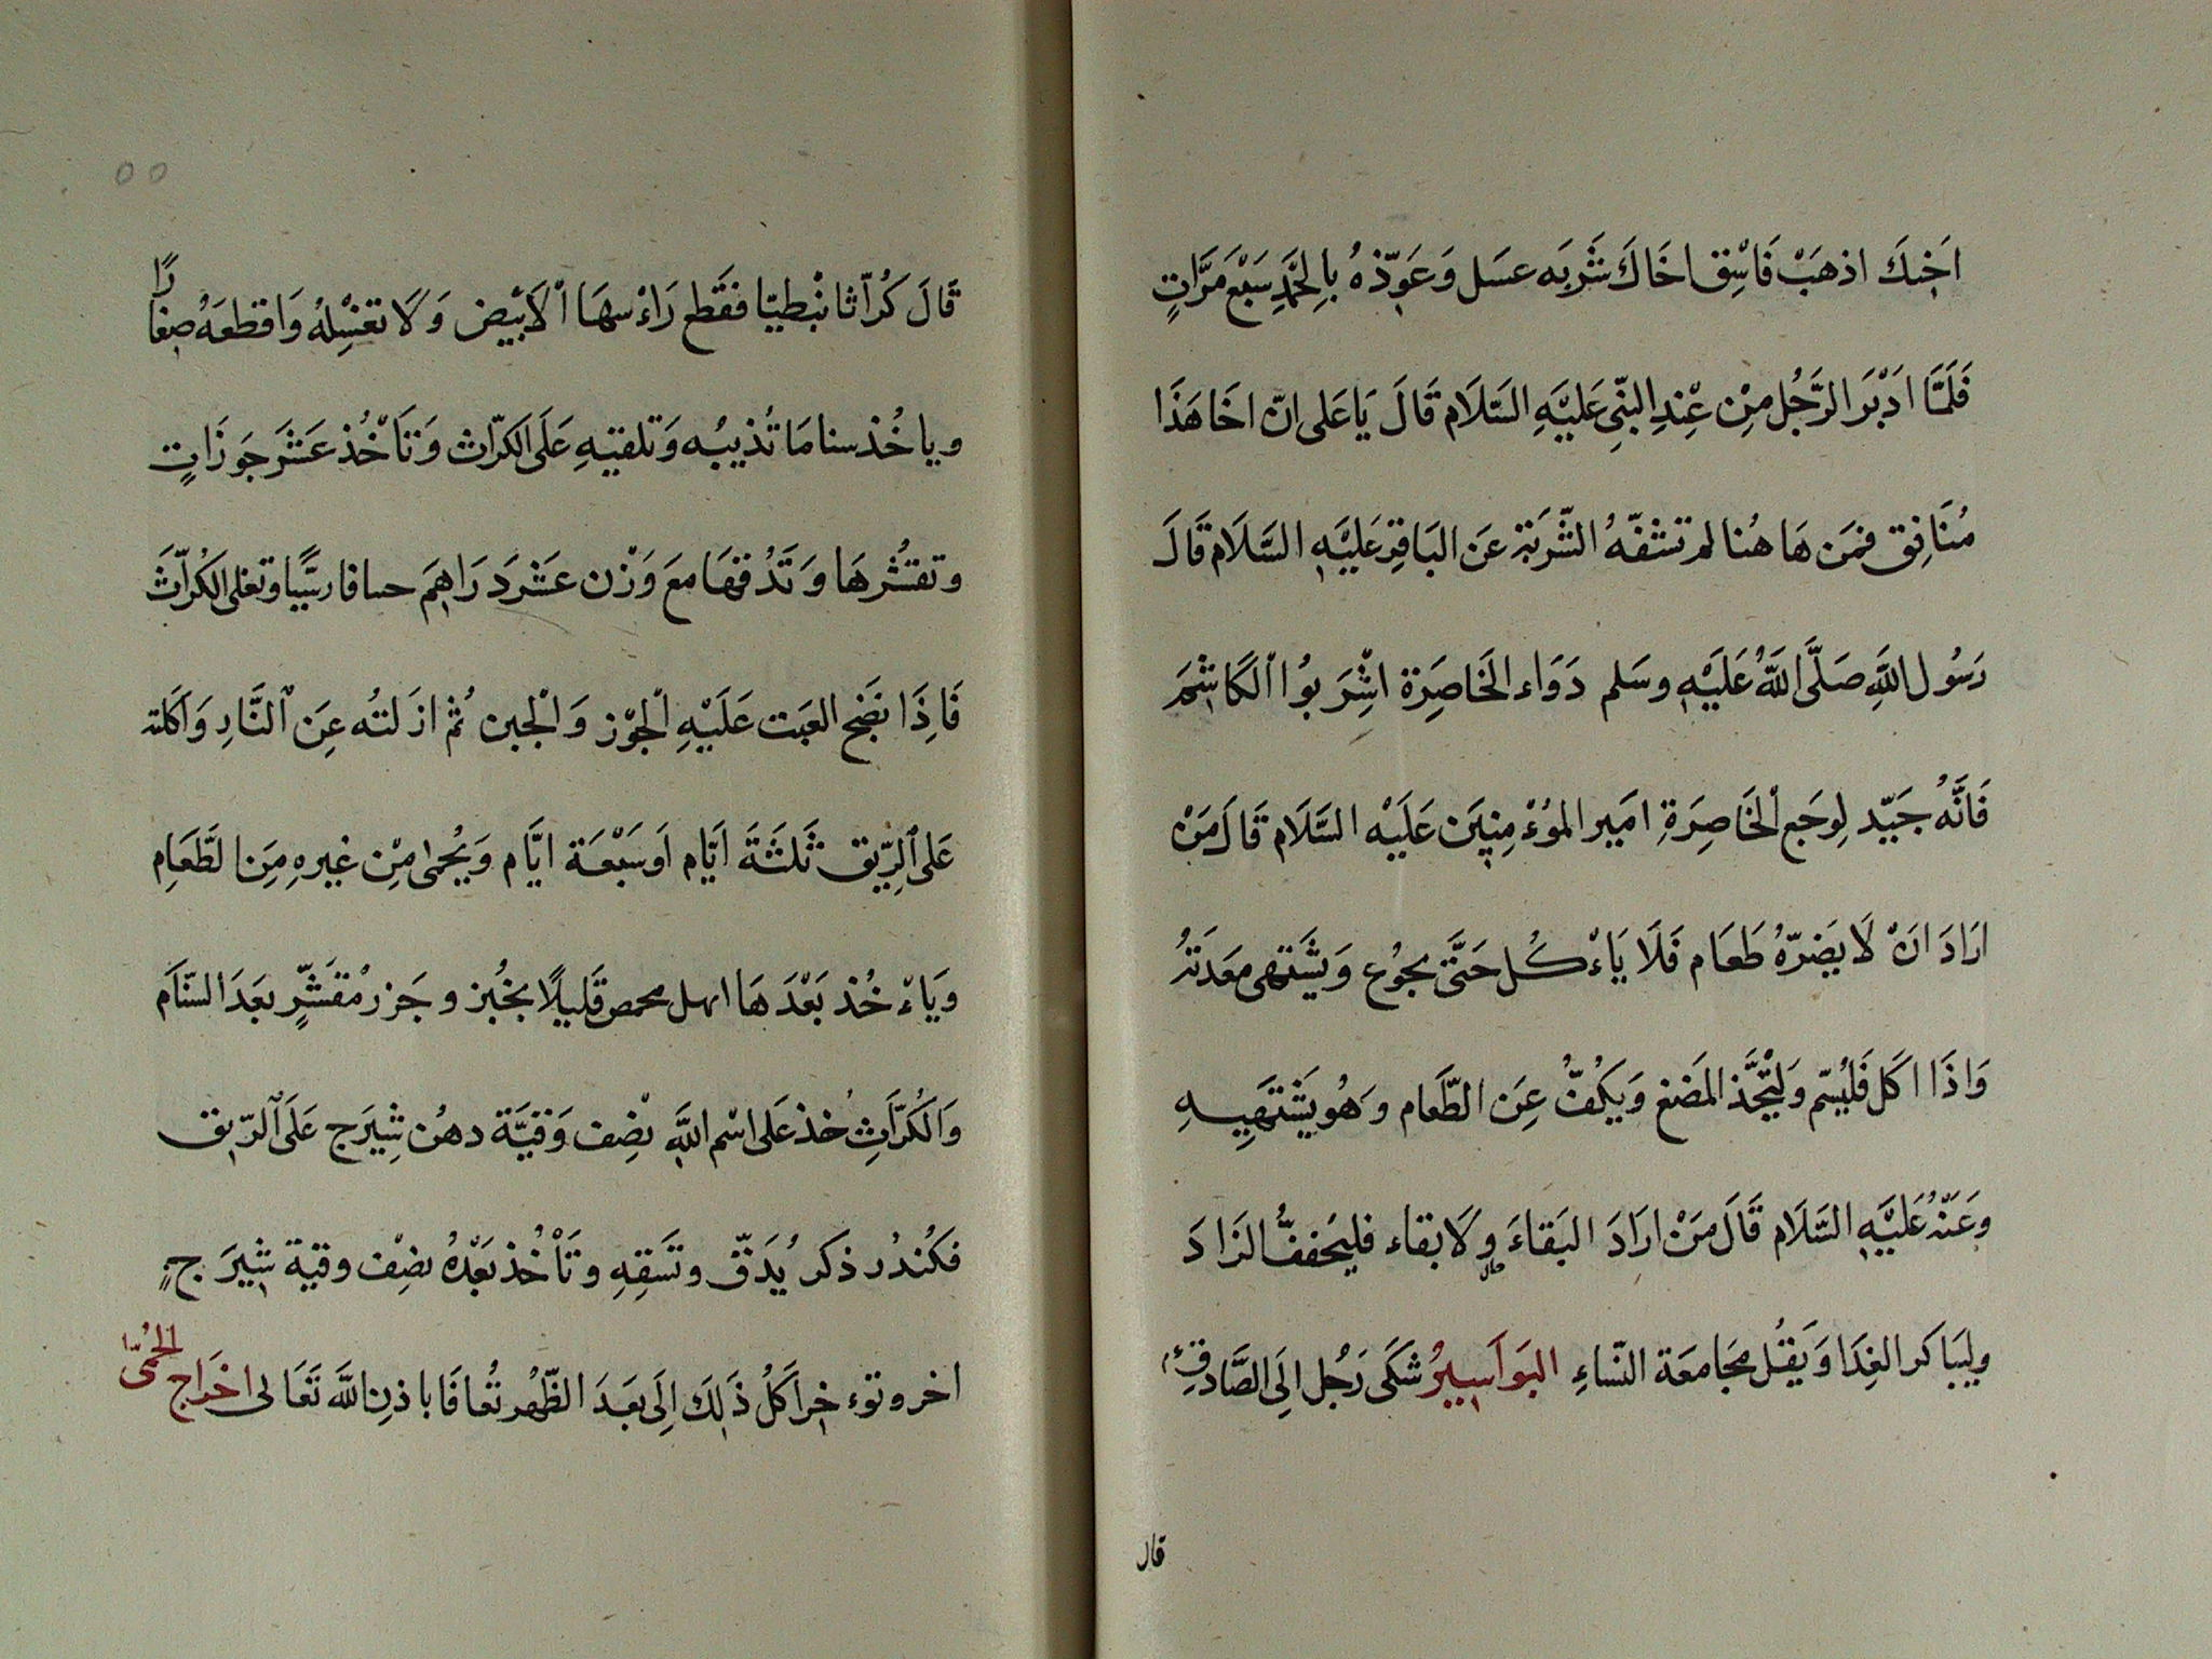 اَخِيكَ اذهَبْ فَاسْقِ اخَاكَ شَربَه عسَل وَعَوِّذهُ بِالحَمدِ سَبْعَ مَرَّاتٍ
فَلَمَّا ادَبَرَ الرَّجُل مِنْ عِنْدِ النبّىِ عَليْهِ السَّلَام قَالَ يَا عَلى انّ اخَا هَذَا
مُنَافِق فمَن هَا هُنا لم تشفهُ الشّربَة عَن البَاقِر عَليْهِ السَّلَام قَالَ
رَسُول اللَّهِ صَلَّى اللَّهُ عَلَيْهِ وسَلم دَوَاء الخَاصِرَة اشْرَبوُا الكَاشِمَ
فَانَّهُ جَيّد لِوجَعِ الْخَاصِرَةِ امَير الموُءْمِنِينَ عَلَيْه السَّلَام قَالَ مَنْ
ارَادَ انَ لَا يَضرّهُ طَعَام فَلَا يَاءْكُل حَتَّى يجوُع وَيَشَتهى مَعَدَتهُ
وَاذَا اكَل فَليُسَم وَليْجَّذ المَضغ وَيَكُفّ عَنِ الطَّعَام وَهُو يَشْتَهِيهِ
وعَنْهُ عَليْهِ السَّلَام قَالَ مَنْ ارَادَ البَقاءَ وَلَا بقاء فليخففُّ الزَادَ
وليَبَاكر الغِدَا وَيَقُل مجَامعَة النّساءِ البَوَاَسِيرُ شَكَى رَجُل الَى الصَّادقِ
قال
قَالَ كرُاّثا نبْطيّا فقَطع رَاءْسهَا الْاَبْيض وَلَا تغسْلِهُ وَاقطعَهُ صِغارًا
وياخُذ سناما مَا تُذيبُه وَتلقيهِ عَلَى الكرّاث وَتَأخُذ عَشَر جَوزَاتٍ
وتقشُرهَا وَتَدُقهَا معَ وَزْن عَشرَ دَرَاهِمَ حسافارسيًّا وتغلى الكُراّثَ
فَاذِا نَضَج القيت عَلَيْهِ الْجوْز وَالْجبن ثمُ ازَلتُه عَنِ النَّارِ وَاَكَلته
عَلى الرِّيق ثَلثَةَ ايّام اَو سَبْعَة ايَّام وَيُحمٰى مِنْ غيرهِ مِنَ الطَّعَامِ
وَيَاءْخُذ بَعْدَهَا ابهل محمص قَليلًا بخُبز وجَزر مُقشّرٍ بَعَدَ السّنَام
وَالكُرّاَثِ خذ عَلى اسْم اللَّهِ نصْف وَقيَّة دهْن شِيَرج عَلَى الرّيق
فكُندُر ذكر يُدَقّ وتَسَقِهِ وتَأْخُذ بَعْدَهُ نصْف وقية شِيرَج
اخر وتوءخِر اَكلُ ذَلِكَ الِى بعَدَ الظّهْر تُعافَا باذنِ اللَّه تَعَالى اخرَاج الحُمّى